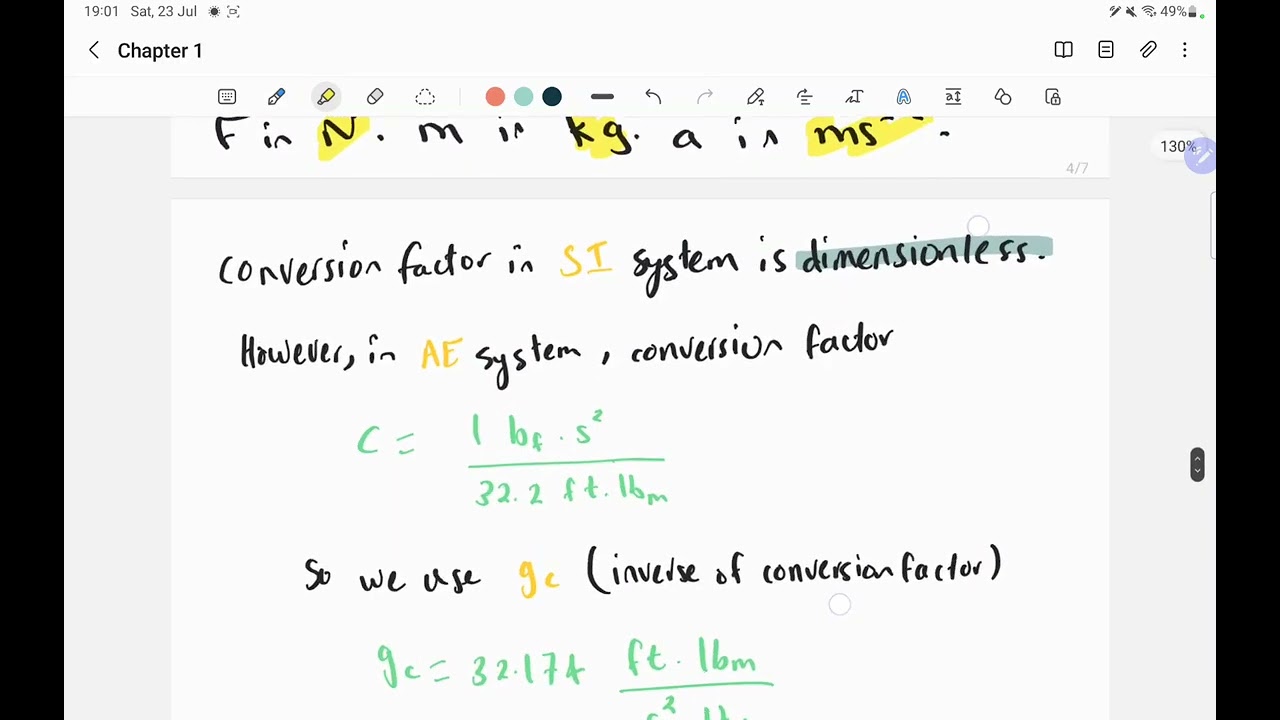 19:01 Sat, 23 Jul
49%
Chapter 1
F in N. m in kg. a is ms⁻².
130%
4/7
Conversion factor in SI system is dimensionless.
However, in AE system, conversion factor
C = 1 lbf . s²
32.2 ft. lbm
So we use gc (inverse of conversion factor)
gc = 32.174 ft. lbm
s²